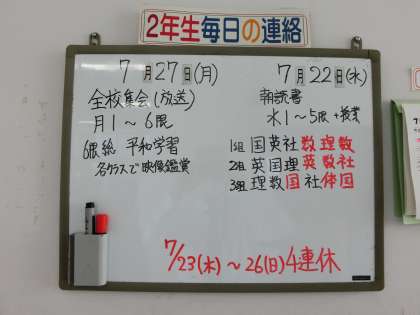 2年生毎日の連絡
7月27日(月)
全校集会(放送)
月1～6限
6限総 平和学習
各クラスで映像鑑賞
7月22日(水)
朝読書
水1～5限+授業
1組 国英社数理数
2組 英国理英数社
3組 理数国社体国
7/23(木)～26(日)4連休